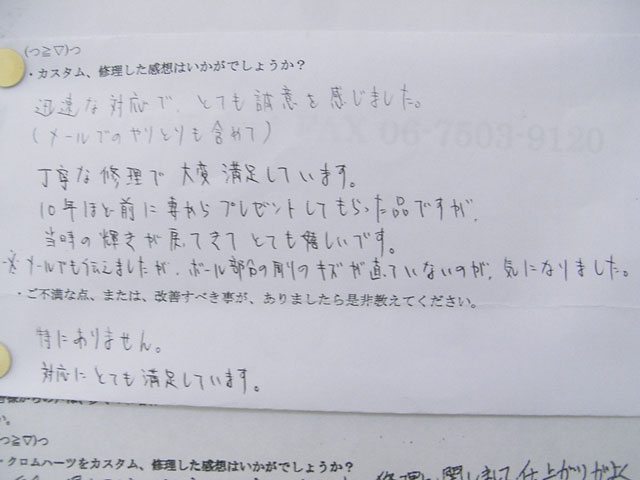 (つ≧▽)つ
・カスタム、修理した感想はいかがでしょうか？
迅速な対応で、とても誠意を感じました。
(メールでのやりとりも含めて)
FAX 06-7503-9120
丁寧な修理で大変満足しています。
10年ほど前に妻からプレゼントしてもらった品ですが、
当時の輝きが戻ってきてとても嬉しいです。
※メールでも伝えましたが、ボール部分の周りのキズが直っていないのが、気になりました。
・ご不満な点、または、改善すべき事が、ありましたら是非教えてください。
特にありません。
対応にとても満足しています。
い。
つ≧▽)つ
・クロムハーツをカスタム、修理した感想はいかがでしょうか？
修理に関しまして仕上がりがよく